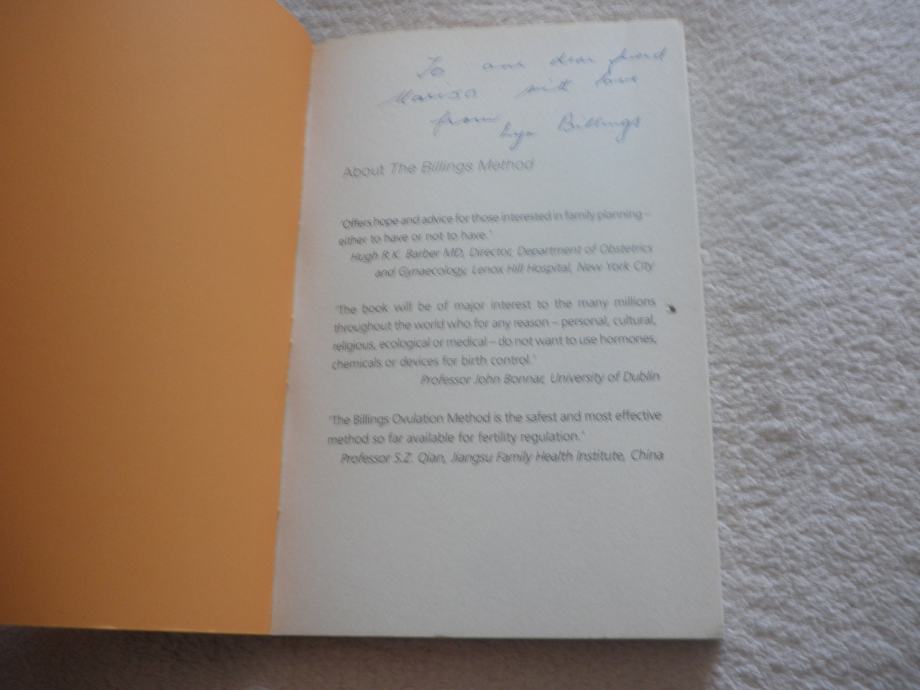 To our dear friend
Marisa with love
from
Lyn Billings
About The Billings Method
'Offers hope and advice for those interested in family planning –
either to have or not to have.'
Hugh R.K. Barber MD, Director, Department of Obstetrics
and Gynaecology, Lenox Hill Hospital, New York City
'The book will be of major interest to the many millions
throughout the world who for any reason – personal, cultural,
religious, ecological or medical – do not want to use hormones,
chemicals or devices for birth control.'
Professor John Bonnar, University of Dublin
'The Billings Ovulation Method is the safest and most effective
method so far available for fertility regulation.'
Professor S.Z. Qian, Jiangsu Family Health Institute, China